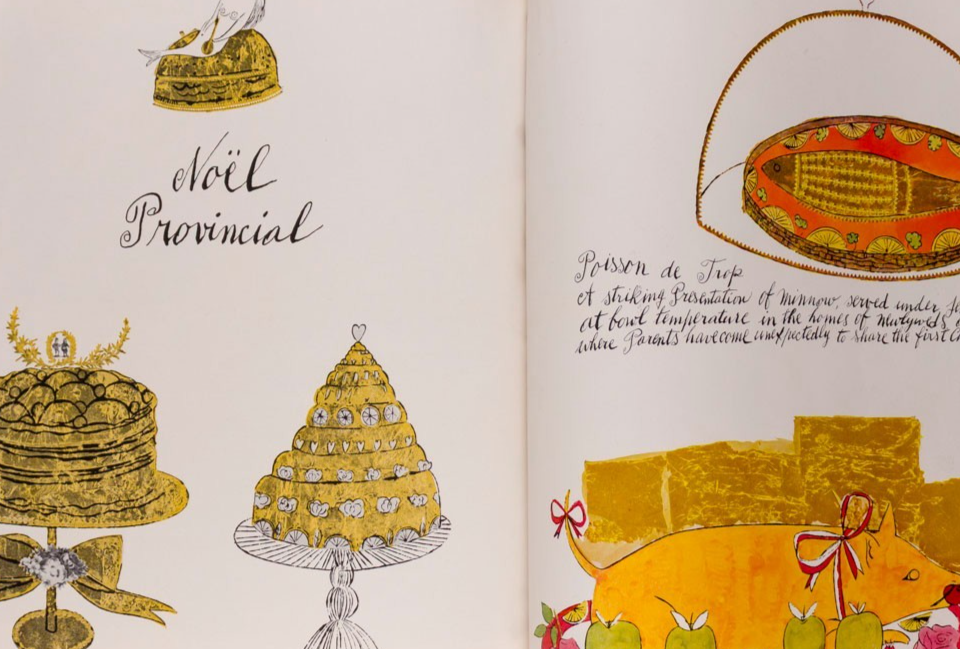 Noël
Provincial
Poisson de Trop
A striking Presentation of minnow, served under
at bowl temperature in the homes of Newlyweds
where Parents have come unexpectedly to share the first